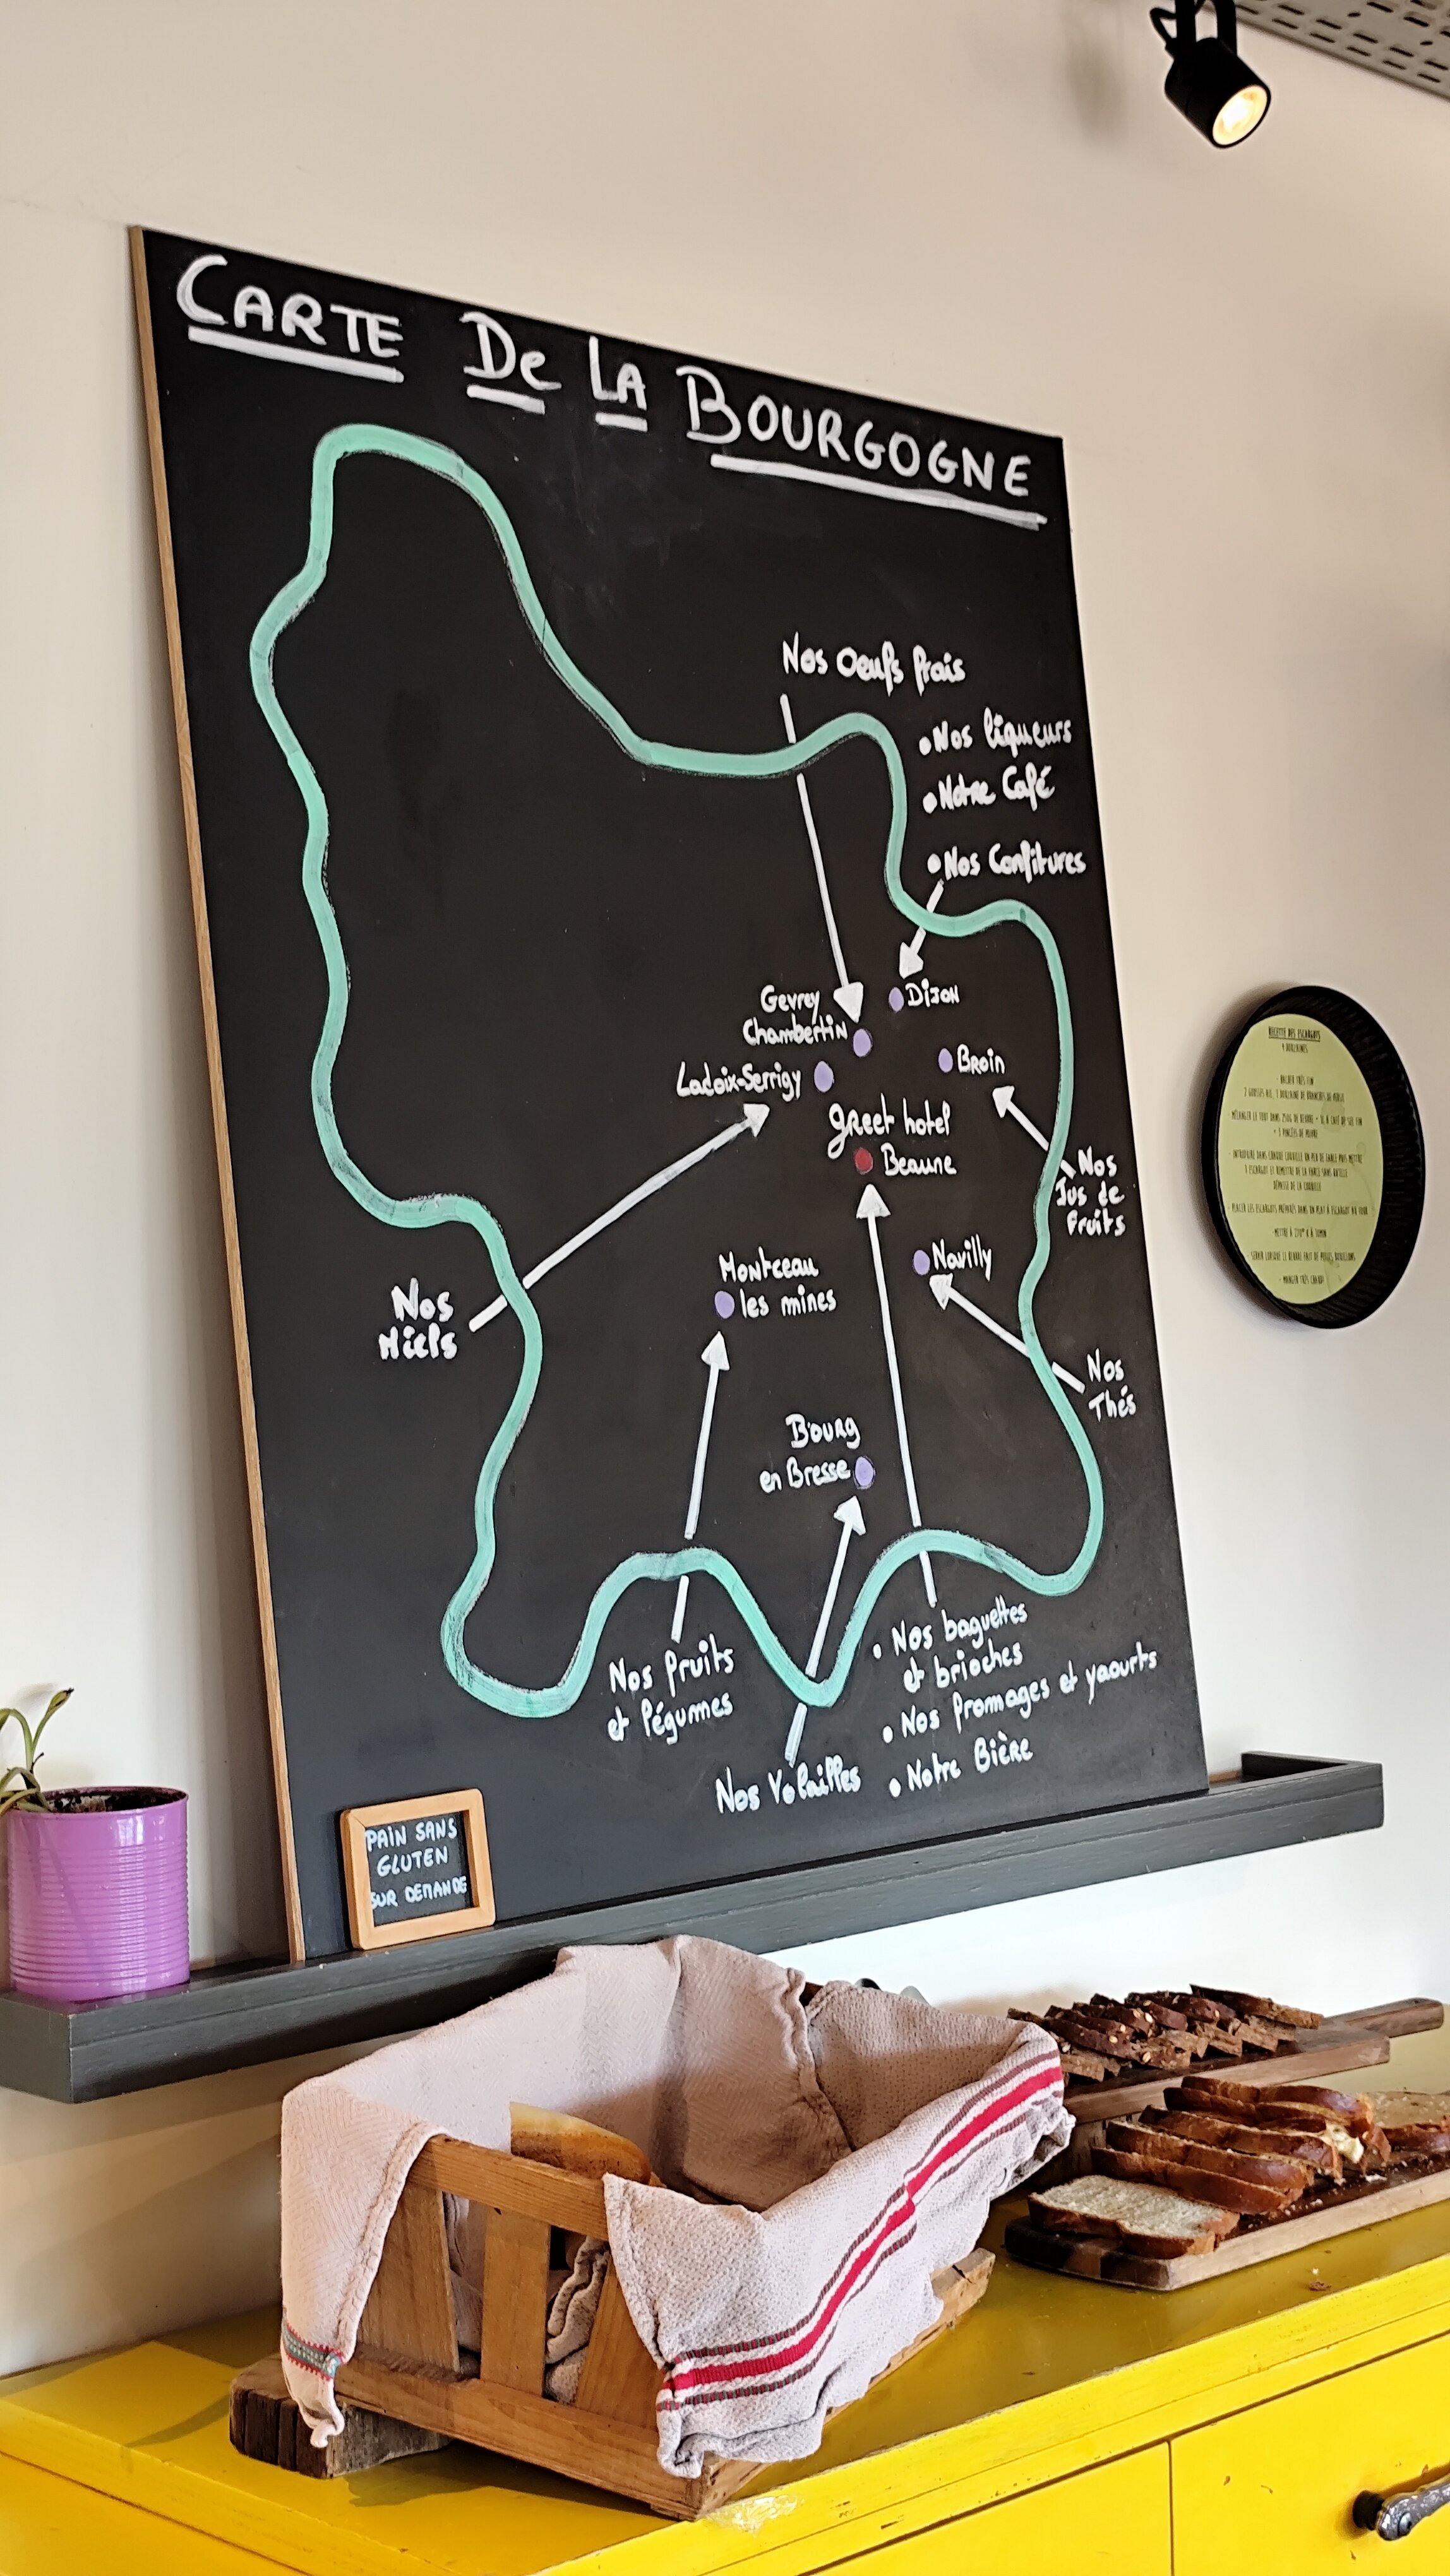 CARTE De LA BOURGOGNE
Nos Oeufs frais
• Nos liqueurs
• Notre Café
• Nos Confitures
Gevrey
Chambertin
DIJON
Ladoix-Serrigy
Broin
greet hotel
Beaune
Nos
Jus de
Fruits
Montceau
les mines
Navilly
Nos
Miels
Nos
Thés
Bourg
en Bresse
Nos fruits
et légumes
Nos Volailles
• Nos baguettes
et brioches
• Nos fromages et yaourts
• Notre Bière
PAIN SANS
GLUTEN
SUR DEMANDE
RECETTE DES ESCARGOTS
4 DOUZAINES
- HACHER TRÈS FIN
- MANGER TRÈS CHAUD